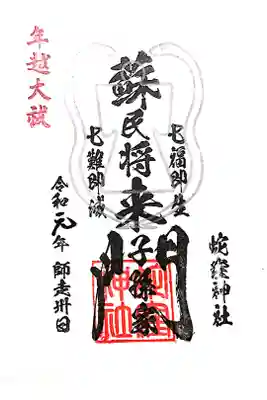 年越大祓
七福即生
蘇民将来子孫家門
七難即滅
蛇窪神社
令和元年 師走卅日